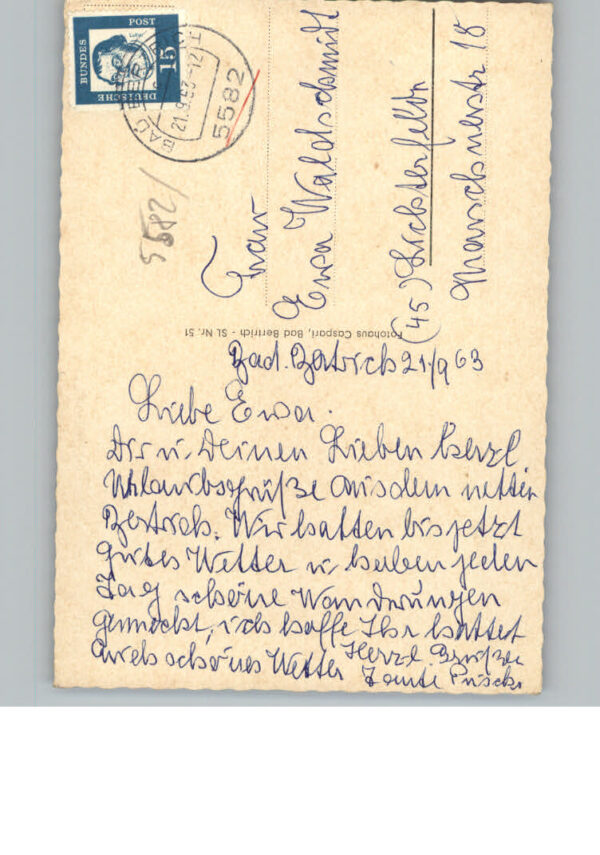 DEUTSCHE BUNDESPOST
15
BAD BERTRICH
21.9.63-12
5582
5582/
Frau
Ewa Waldschmidt
(45) Lichterfeld
18
Fotohaus Caspari, Bad Bertrich - SL Nr. 51
Bad. Bertrich 21/9 63
Liebe Ewa.
Dir u. Deinen Lieben herzl
Urlaubsgrüße aus dem netten
Bertrich. Wir hatten bis jetzt
gutes Wetter u. haben jeden
Tag schöne Wanderungen
gemacht, ich hoffe Ihr hattet
auch schönes Wetter Herzl. Grüße
Tante